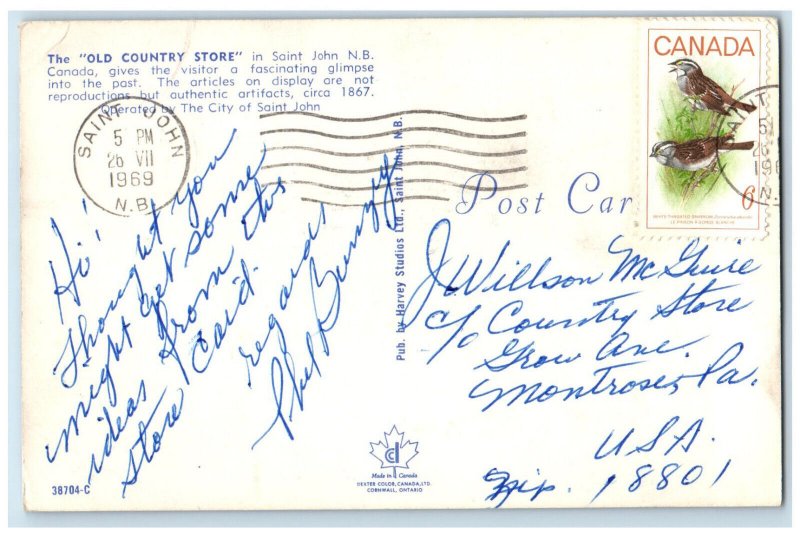 The "OLD COUNTRY STORE" in Saint John N.B.
Canada, gives the visitor a fascinating glimpse
into the past. The articles on display are not
reproductions but authentic artifacts, circa 1867.
Operated by The City of Saint John
SAINT JOHN
5 PM
26 VII
1969
N.B.
CANADA
6
Post Car
Hi!
Thought you
might get some
ideas from this
store card.
regards
Pub. by Harvey Studios Ltd., Saint John, N.B.
J. Willson McGuire
c/o Country Store
Grow Ave.
Montrose, Pa.
USA.
Zip. 18801
38704-C
Made in Canada
DEXTER COLOR, CANADA, LTD.
CORNWALL, ONTARIO